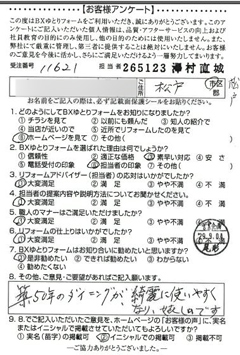 【お客様アンケート】
この度はBXゆとりフォームをご利用いただき、誠にありがとうございます。この
アンケートにご記入いただいた個人情報は、品質・アフターサービス向上および
社員教育の目的にのみ使用し、他の目的のためには使用いたしません。また、
弊社にて厳重に管理し、第三者に提供することは絶対にいたしません。お客様
のご意見を今後に活かし、さらにご満足いただけるよう一層努力してまいります。
受注番号 11621 担当者 265123 澤村直城
松戸 市区郡
お名前をご記入の際は、必ず記載面保護シールをお貼りください。
1. どのようにしてBXゆとりフォームをお知りになりましたか?
①チラシを見て ②以前にも頼んだ ③知人の紹介で
④当店が近いので ⑤近所でリフォームしたのを見て
⑥ホームページを見て ⑦その他(
2. BXゆとりフォームを選ばれた理由は何でしょうか?
①信頼性 ②適正な価格 ③素早い対応 ④安さ
⑤電話受付の印象 ⑥担当者の印象 ⑦その他(
3. リフォームアドバイザー(担当者)の応対はいかがでしたか?
①大変満足 ②満足 ③やや不満 ④不満
4. 担当者の提案内容や説明方法についてお聞かせください。
①大変満足 ②満足 ③やや不満 ④不満
5. 職人のマナーはご満足いただけましたか?
①大変満足 ②満足 ③やや不満 ④不満
6. リフォームの仕上りはいかがでしたか?
①大変満足 ②満足 ③やや不満
7. BXゆとりフォームはお知り合いに勧めたいと思いますか?
①是非勧めたい ②できれば勧めたい ③わからない
④勧めたくない
8. その他、ご意見・ご要望があればご記入願います。
築50年のダイニングが、綺麗に使いやすく
なり、嬉しいです
9. 8.でご記入いただいたご意見を、ホームページの「お客様の声」に、実名
またはイニシャルで掲載させていただいてもよろしいですか?
①実名(苗字)の掲載可 ②イニシャルでの掲載可 ③掲載不可
ーご協力ありがとうございました。ー